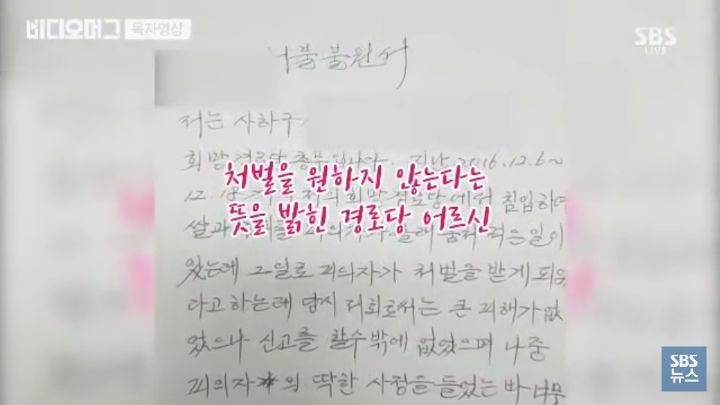 비디오머그 독자영상
SBS
LIVE
처벌불원서
저는 사하구
희망경로당 총무입니다. 지난 2016.12.6~
처벌을 원하지 않는다는
뜻을 밝힌 경로당 어르신
쌀과 먹는일이
있는데 그일로 피의자가 처벌을 받게 되었
다고 하는데 당시 저희로써는 큰 피해가 없
었으나 신고를 할수밖에 없었으며 나중
피의자 의 딱한 사정을 들었는 바
SBS
뉴스